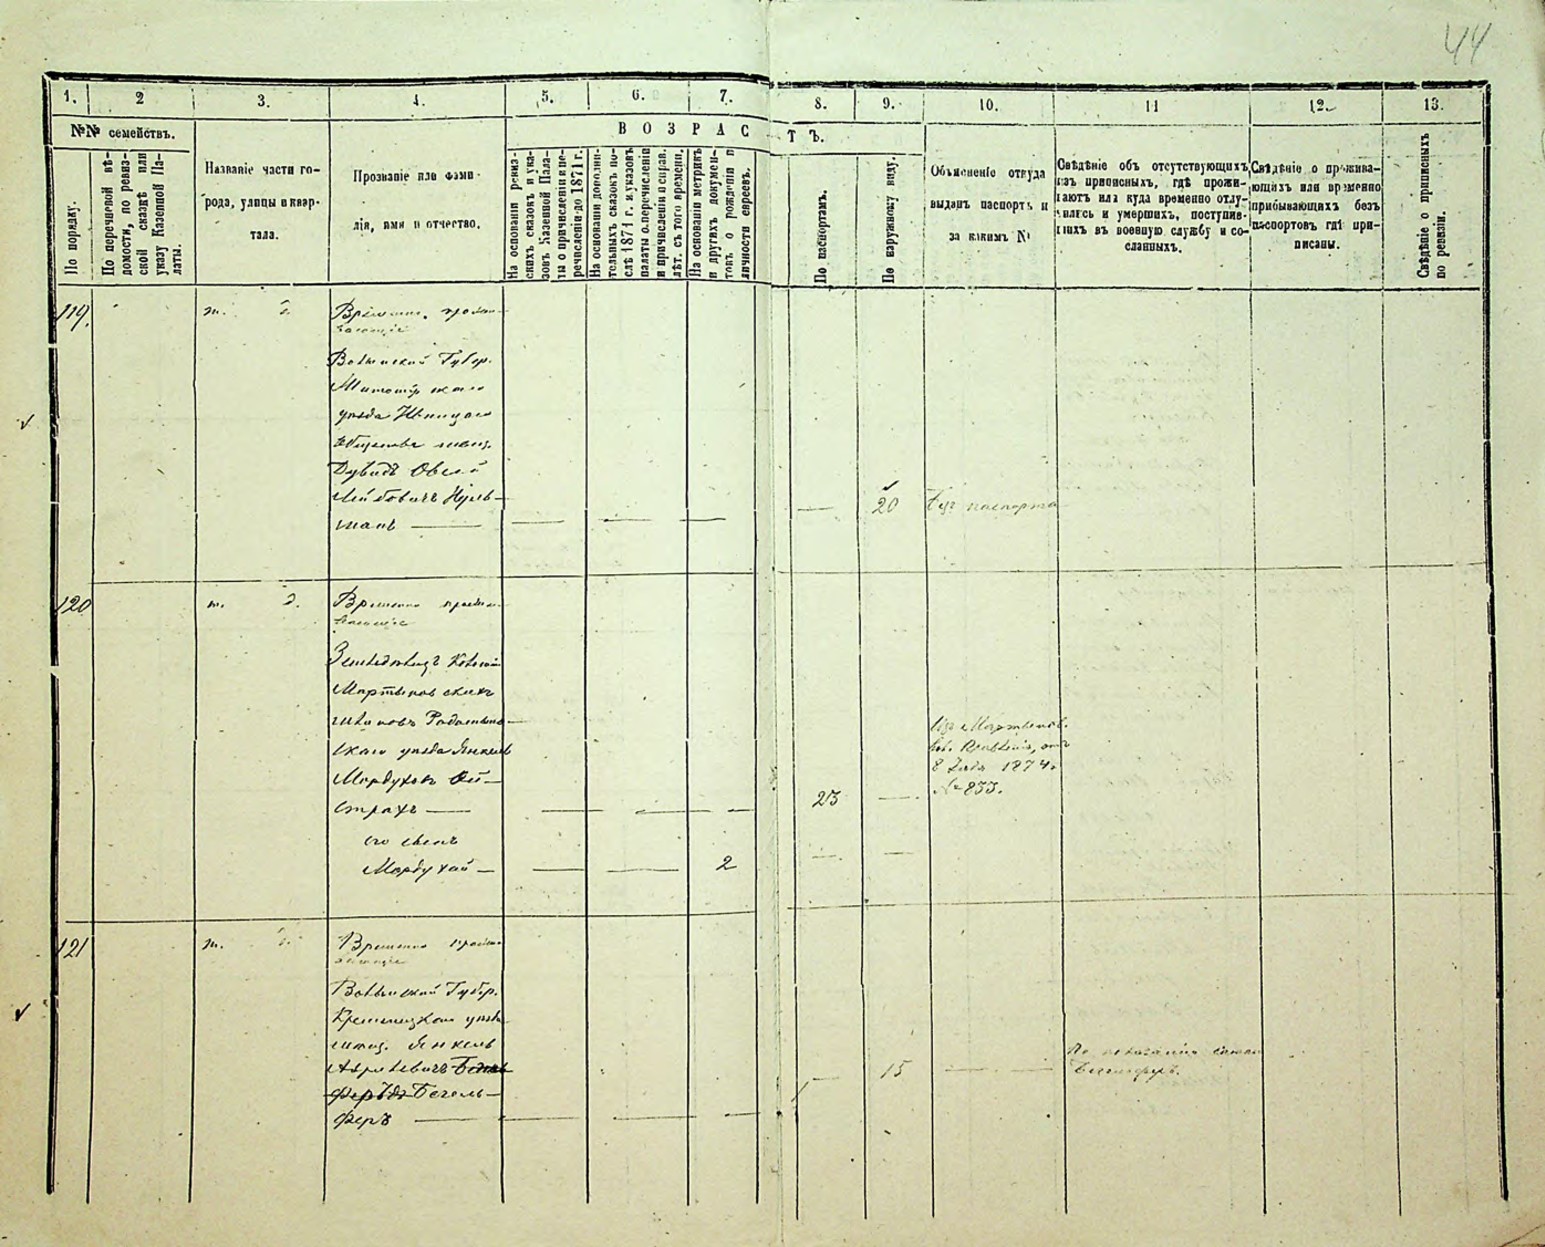 44
1. 2 3. 4. 5. 6. 7. 8. 9. 10. 11 12. 13.
№№ семействъ.
По порядку.
По перечневой вѣ-
домости, по ревиз-
ской сказкѣ или
указу Казенной Па-
латы.
Названіе части го-
рода, улицы и квар-
тала.
Прозваніе или фами-
лія, имя и отчество.
ВОЗРАСТЪ.
На основаніи ревиз-
скихъ сказокъ и ука-
зовъ Казенной Пала-
ты о причисленіи и пе-
речисленіи до 1871 г.
На основаніи дополни-
тельныхъ сказокъ по-
слѣ 1871 г. и указовъ
палаты о перечисленіи
и причисленіи и справ.
лѣт. съ того времени.
На основаніи метрикъ
и другихъ докумен-
товъ о рожденіи и
личности евреевъ.
По паспортамъ.
По наружному виду.
Объясненіе откуда
выданъ паспортъ и
за какимъ №
Свѣдѣніе объ отсутствующихъ
изъ приписныхъ, гдѣ прожи-
ваютъ или куда временно отлу-
чились и умершихъ, поступив-
шихъ въ военную службу и со-
сланныхъ.
Свѣдѣніе о прожива-
ющихъ или временно
прибывающихъ безъ
паспортовъ гдѣ при-
писаны.
Свѣдѣніе о приписныхъ
по ревизіи.
119.
Временно прожи-
вающіе
Волынской Губер.
Житомірскаго
уѣзда Ивницкаго
общества мѣщ.
Дувидъ Овсей
Лейбовичъ Нуль-
манъ
20
Безъ паспорта
120
Временно прожи-
вающіе
Земледѣлецъ Колоніи
Мартыновскихъ
Радомысль-
скаго уѣзда Янкель
Мордуховъ Ой-
страхъ
23
Изъ Мартынов.
8 1874.
№ 833.
его сынъ
Мордухай
2
121
Временно прожи-
вающіе
Волынской Губер.
Кременецкаго уѣзда
мѣщ. Янкель
Абрамовичъ
Бегель-
феръ
15
По показанію самаго
Бегельферъ.